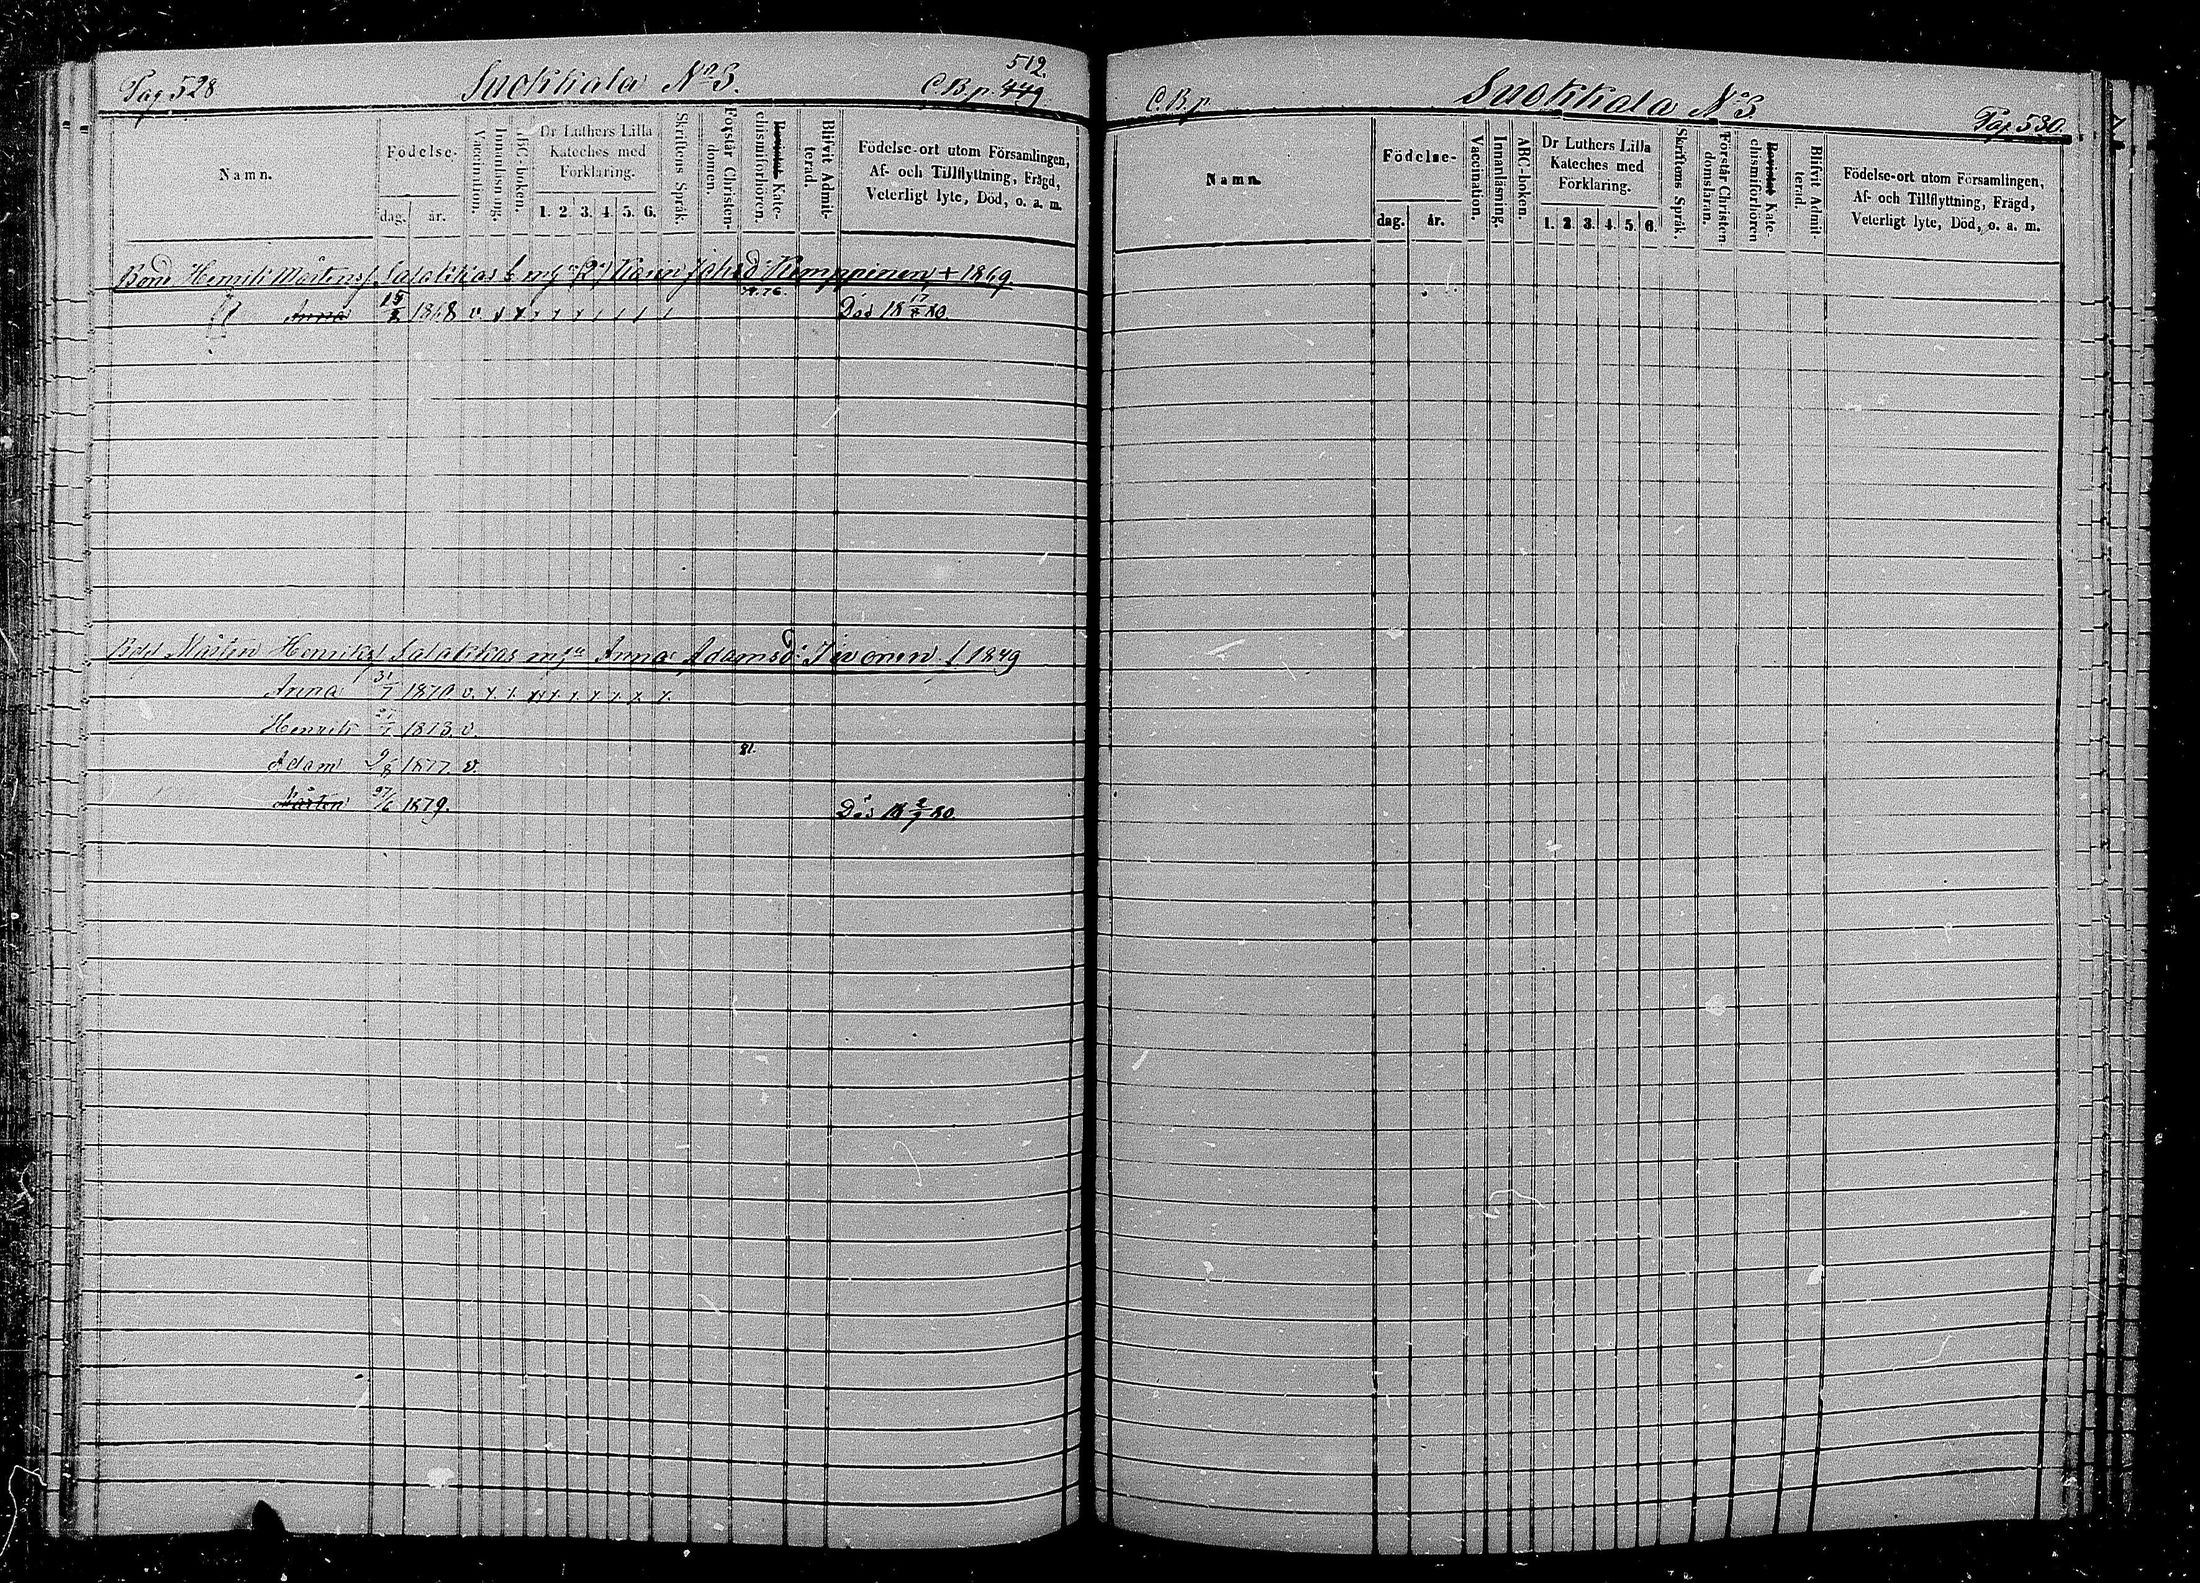 Pag 528 Suokkala No 3. C.B.p. 449 512.
Namn.
Födelse-
dag. år.
Vaccination.
Innanläsning.
ABC-boken.
Dr Luthers Lilla
Kateches med
Förklaring.
1. 2. 3. 4. 5. 6.
Skriftens Språk.
Förstår Christen-
domen.
Bevistat Kate-
chismiförhören.
Blifvit Admit-
terad.
Födelse-ort utom Församlingen,
Af- och Tillflyttning, Frägd,
Veterligt lyte, Död, o. a. m.
Bond Henrik Mårtens Salakkas Karin Johsd Kemppinen + 1869.
76.
Anna 1868 v. Död 18 17/ 80.
Mårten Henriks Salakkas Anna Adamsd Iivonen f 1849
Anna 31/7 1870 v.
Henrik 1873. v.
81.
Adam 1877. v.
Mårten 27/6 1879. Död 18 2/9 80.
C.B.p. Suokkala No 3. Pag. 530.
Namn.
Födelse-
dag. år.
Vaccination.
Innanläsning.
ABC-boken.
Dr Luthers Lilla
Kateches med
Förklaring.
1. 2. 3. 4. 5. 6.
Skriftens Språk.
Förstår Christen
domsläran.
Bevistat Kate-
chismiförhören
Blifvit Admit-
terad.
Födelse-ort utom Församlingen,
Af- och Tillflyttning, Frägd,
Veterligt lyte, Död, o. a. m.